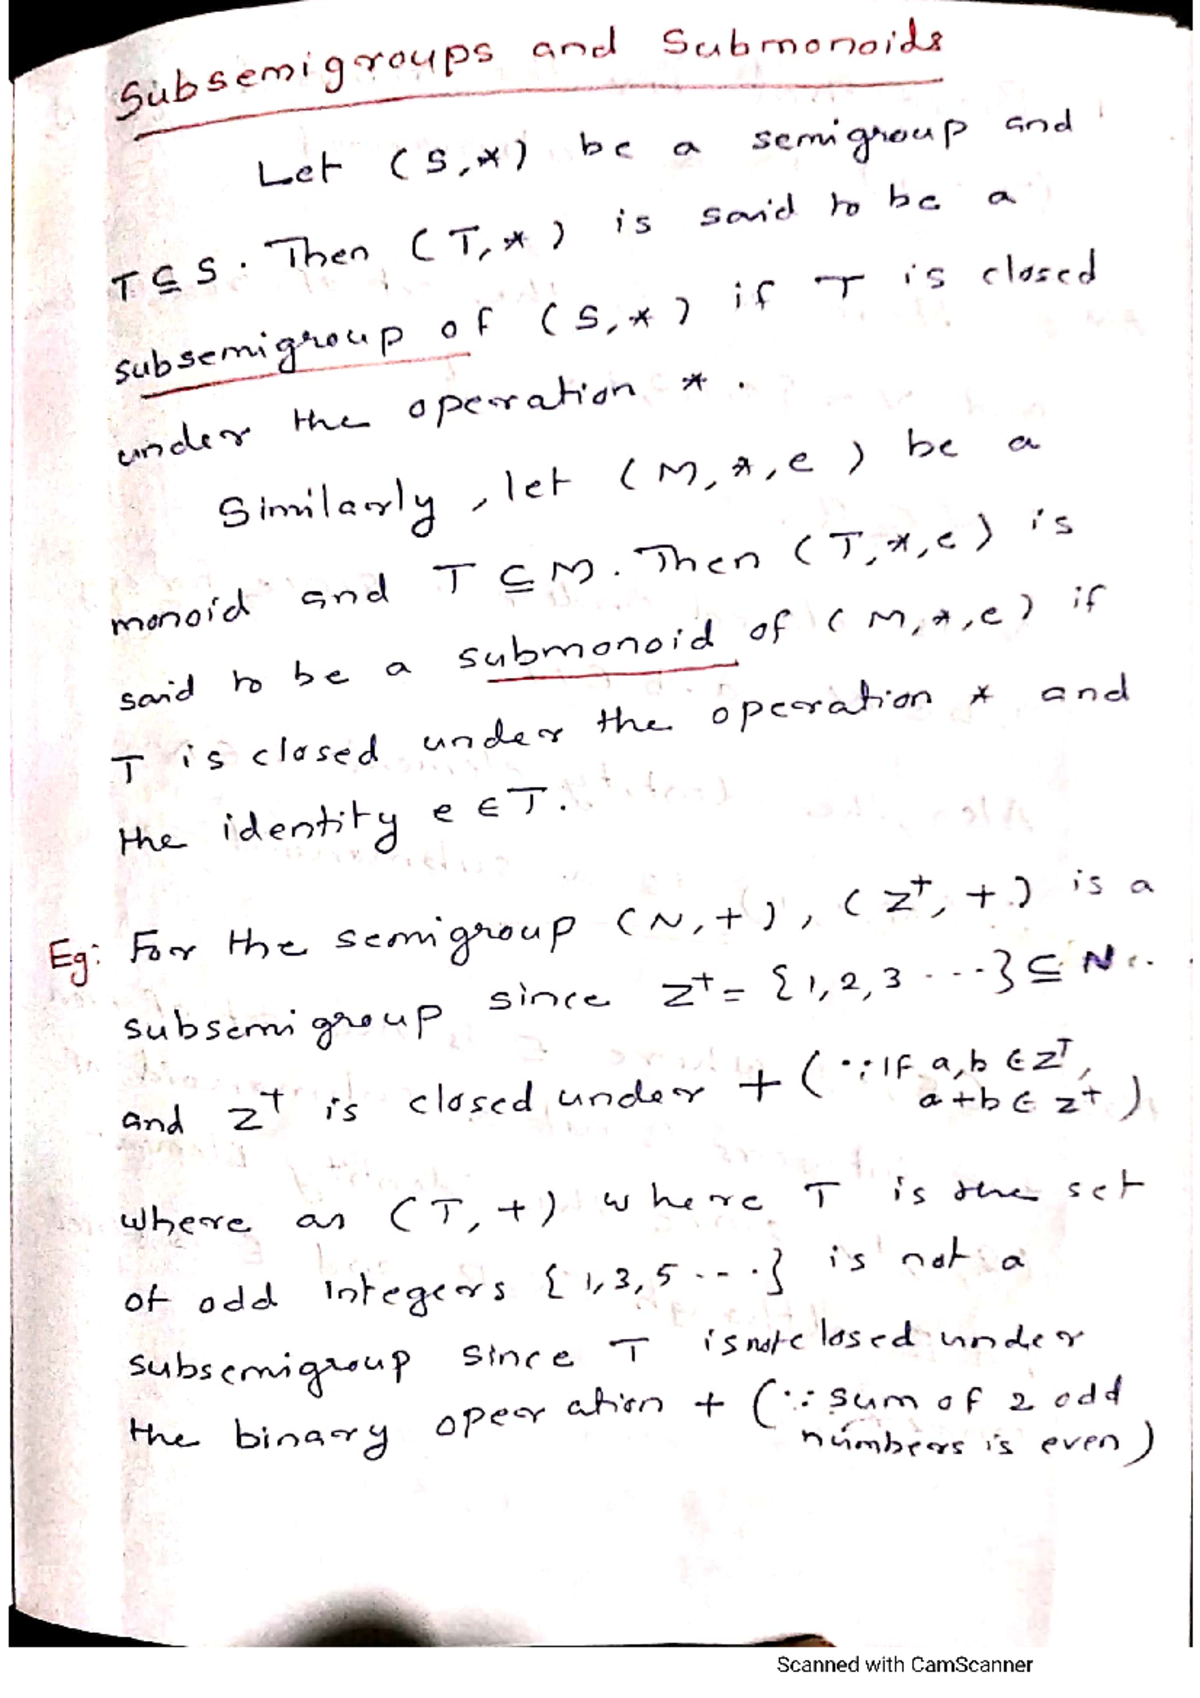 Subsemigroups and Submonoids
Let (S,*) be a semigroup and
T⊆S. Then (T,*) is said to be a
subsemigroup of (S,*) if T is closed
under the operation *.
Similarly, let (M,*,e) be a
monoid and T⊆M. Then (T,*,e) is
said to be a submonoid of (M,*,e) if
T is closed under the operation * and
the identity e∈T.
Eg: For the semigroup (N,+), (Z⁺,+) is a
subsemigroup since Z⁺={1,2,3 ---}⊆N.
and Z⁺ is closed under + (∵ If a,b∈Z⁺,
a+b∈Z⁺)
where as (T,+) where T is the set
of odd integers {1,3,5 ---} is not a
subsemigroup since T is not closed under
the binary operation + (∵ sum of 2 odd
numbers is even)
Scanned with CamScanner